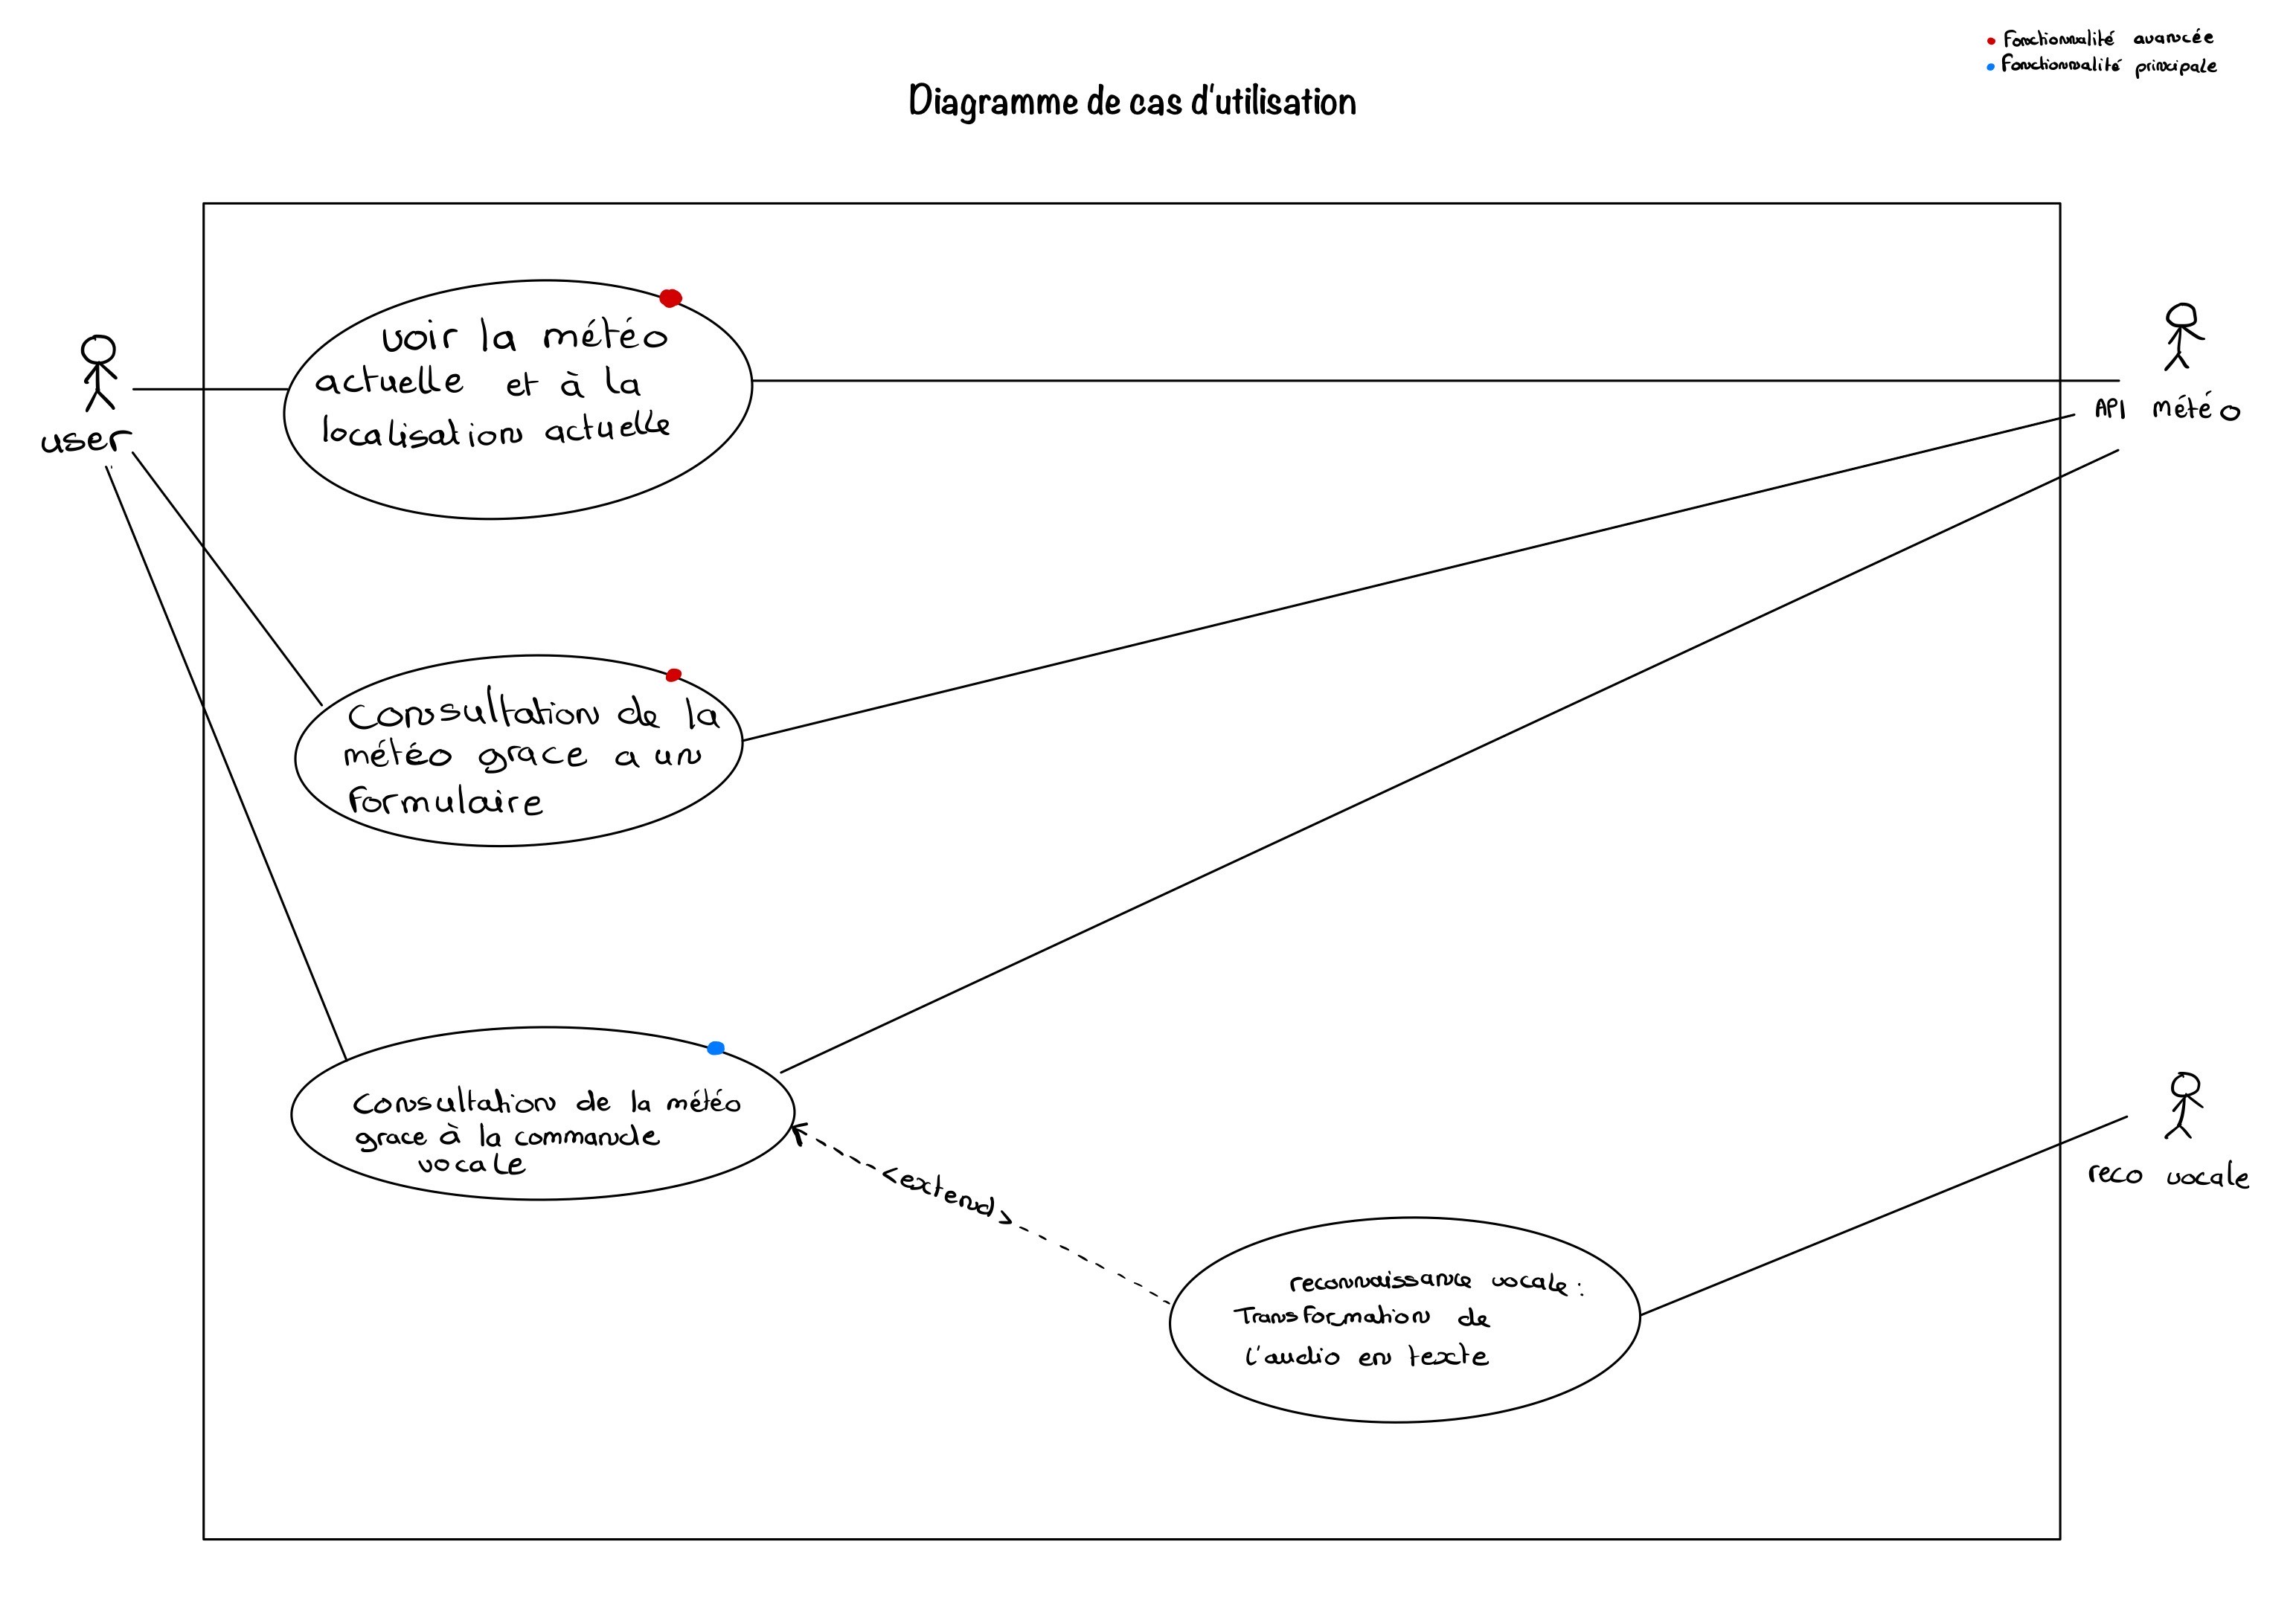 Fonctionnalité avancée
Fonctionnalité principale
Diagramme de cas d'utilisation
voir la météo
actuelle et à la
localisation actuelle
user
API météo
Consultation de la
météo grace a un
formulaire
Consultation de la météo
grace à la commande
vocale
<extend>
reco vocale
reconnaissance vocale :
Transformation de
l'audio en texte